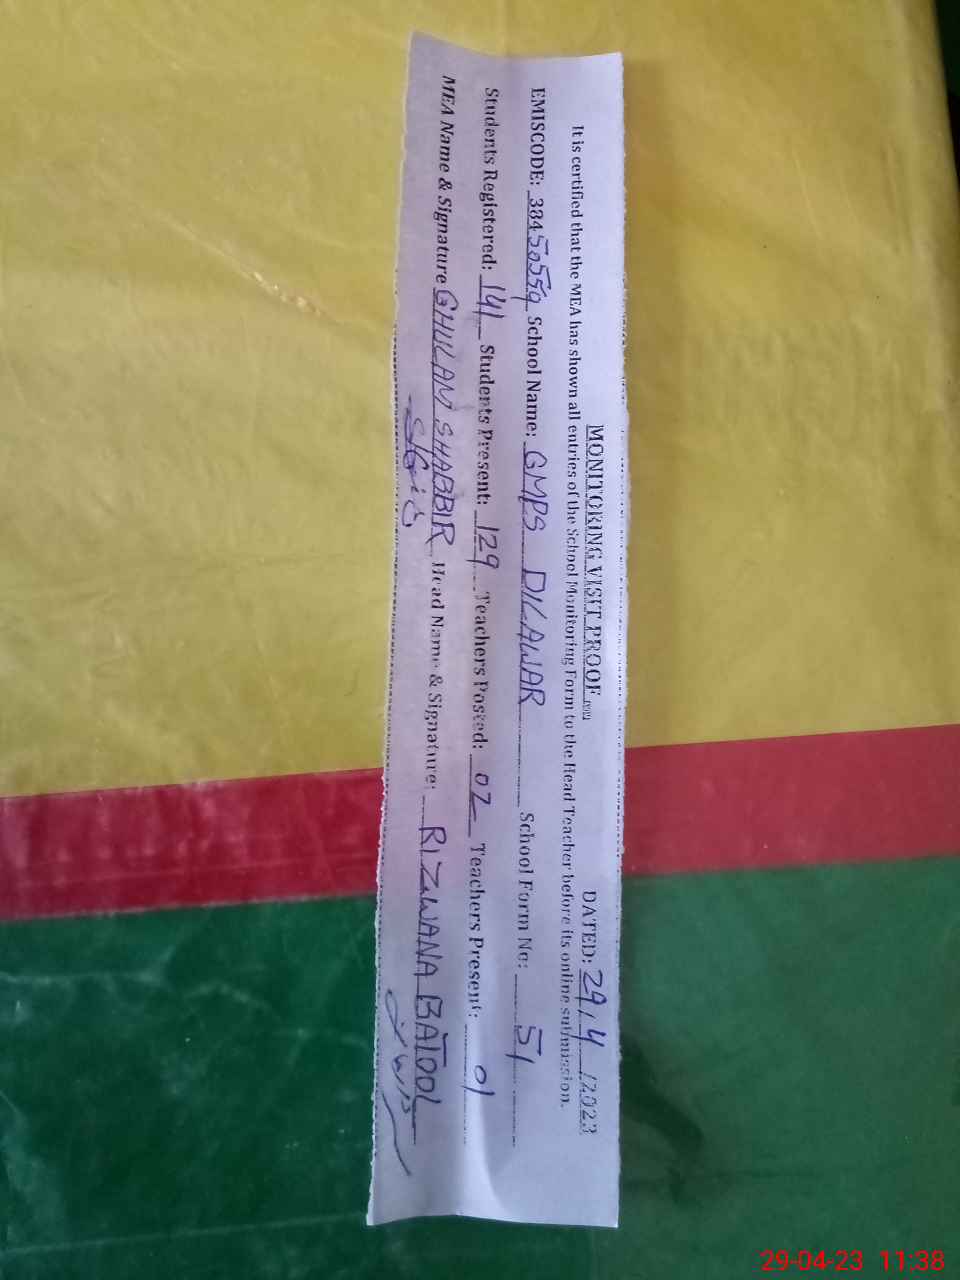 MONITORING VISIT PROOF DATED: 29/4/2023
It is certified that the MEA has shown all entries of the School Monitoring Form to the Head Teacher before its online submission.
EMISCODE: 38450559 School Name: GMPS DILAWAR School Form No: 51
Students Registered: 141 Students Present: 129 Teachers Posted: 02 Teachers Present: 01
MEA Name & Signature GHULAM SHABBIR Head Name & Signature: RIZWANA BATOOL
29-04-23 11:38